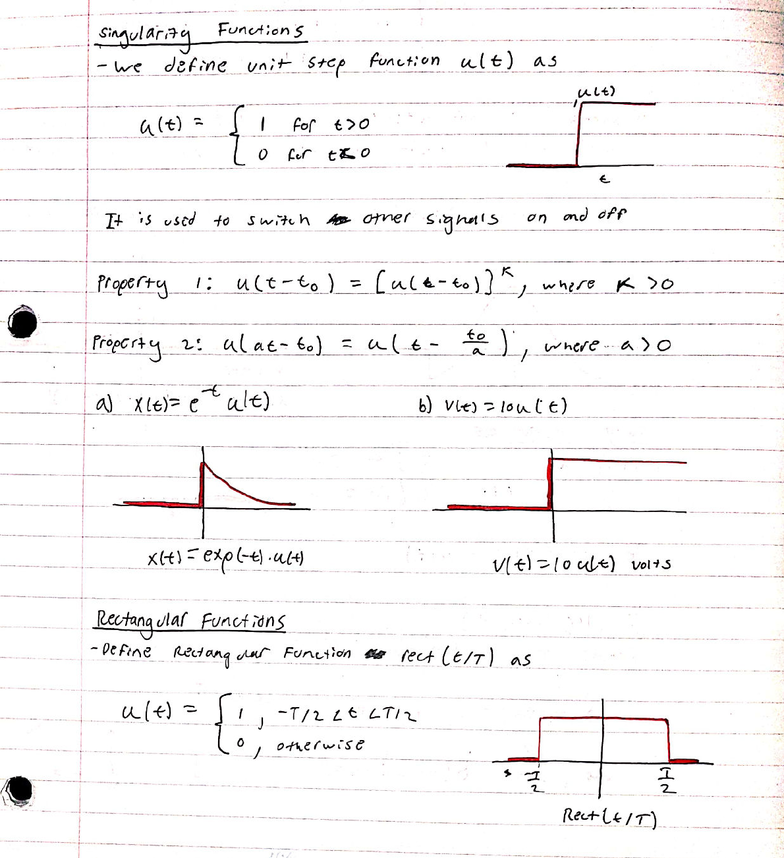 Singularity Functions
- We define unit step function u(t) as
u(t)
u(t) = { 1 for t>0
0 for t<0
t
It is used to switch other signals on and off
Property 1: u(t-t₀) = [u(t-t₀)]ᴷ, where K >0
Property 2: u(at-t₀) = u(t - t₀/a), where a>0
a) x(t)= e^-t u(t) b) V(t) = 10u(t)
x(t) = exp(-t)·u(t) V(t) = 10 u(t) volts
Rectangular Functions
- Define Rectangular Function rect (t/T) as
u(t) = { 1, -T/2 < t < T/2
0, otherwise
T/2 T/2
Rect(t/T)